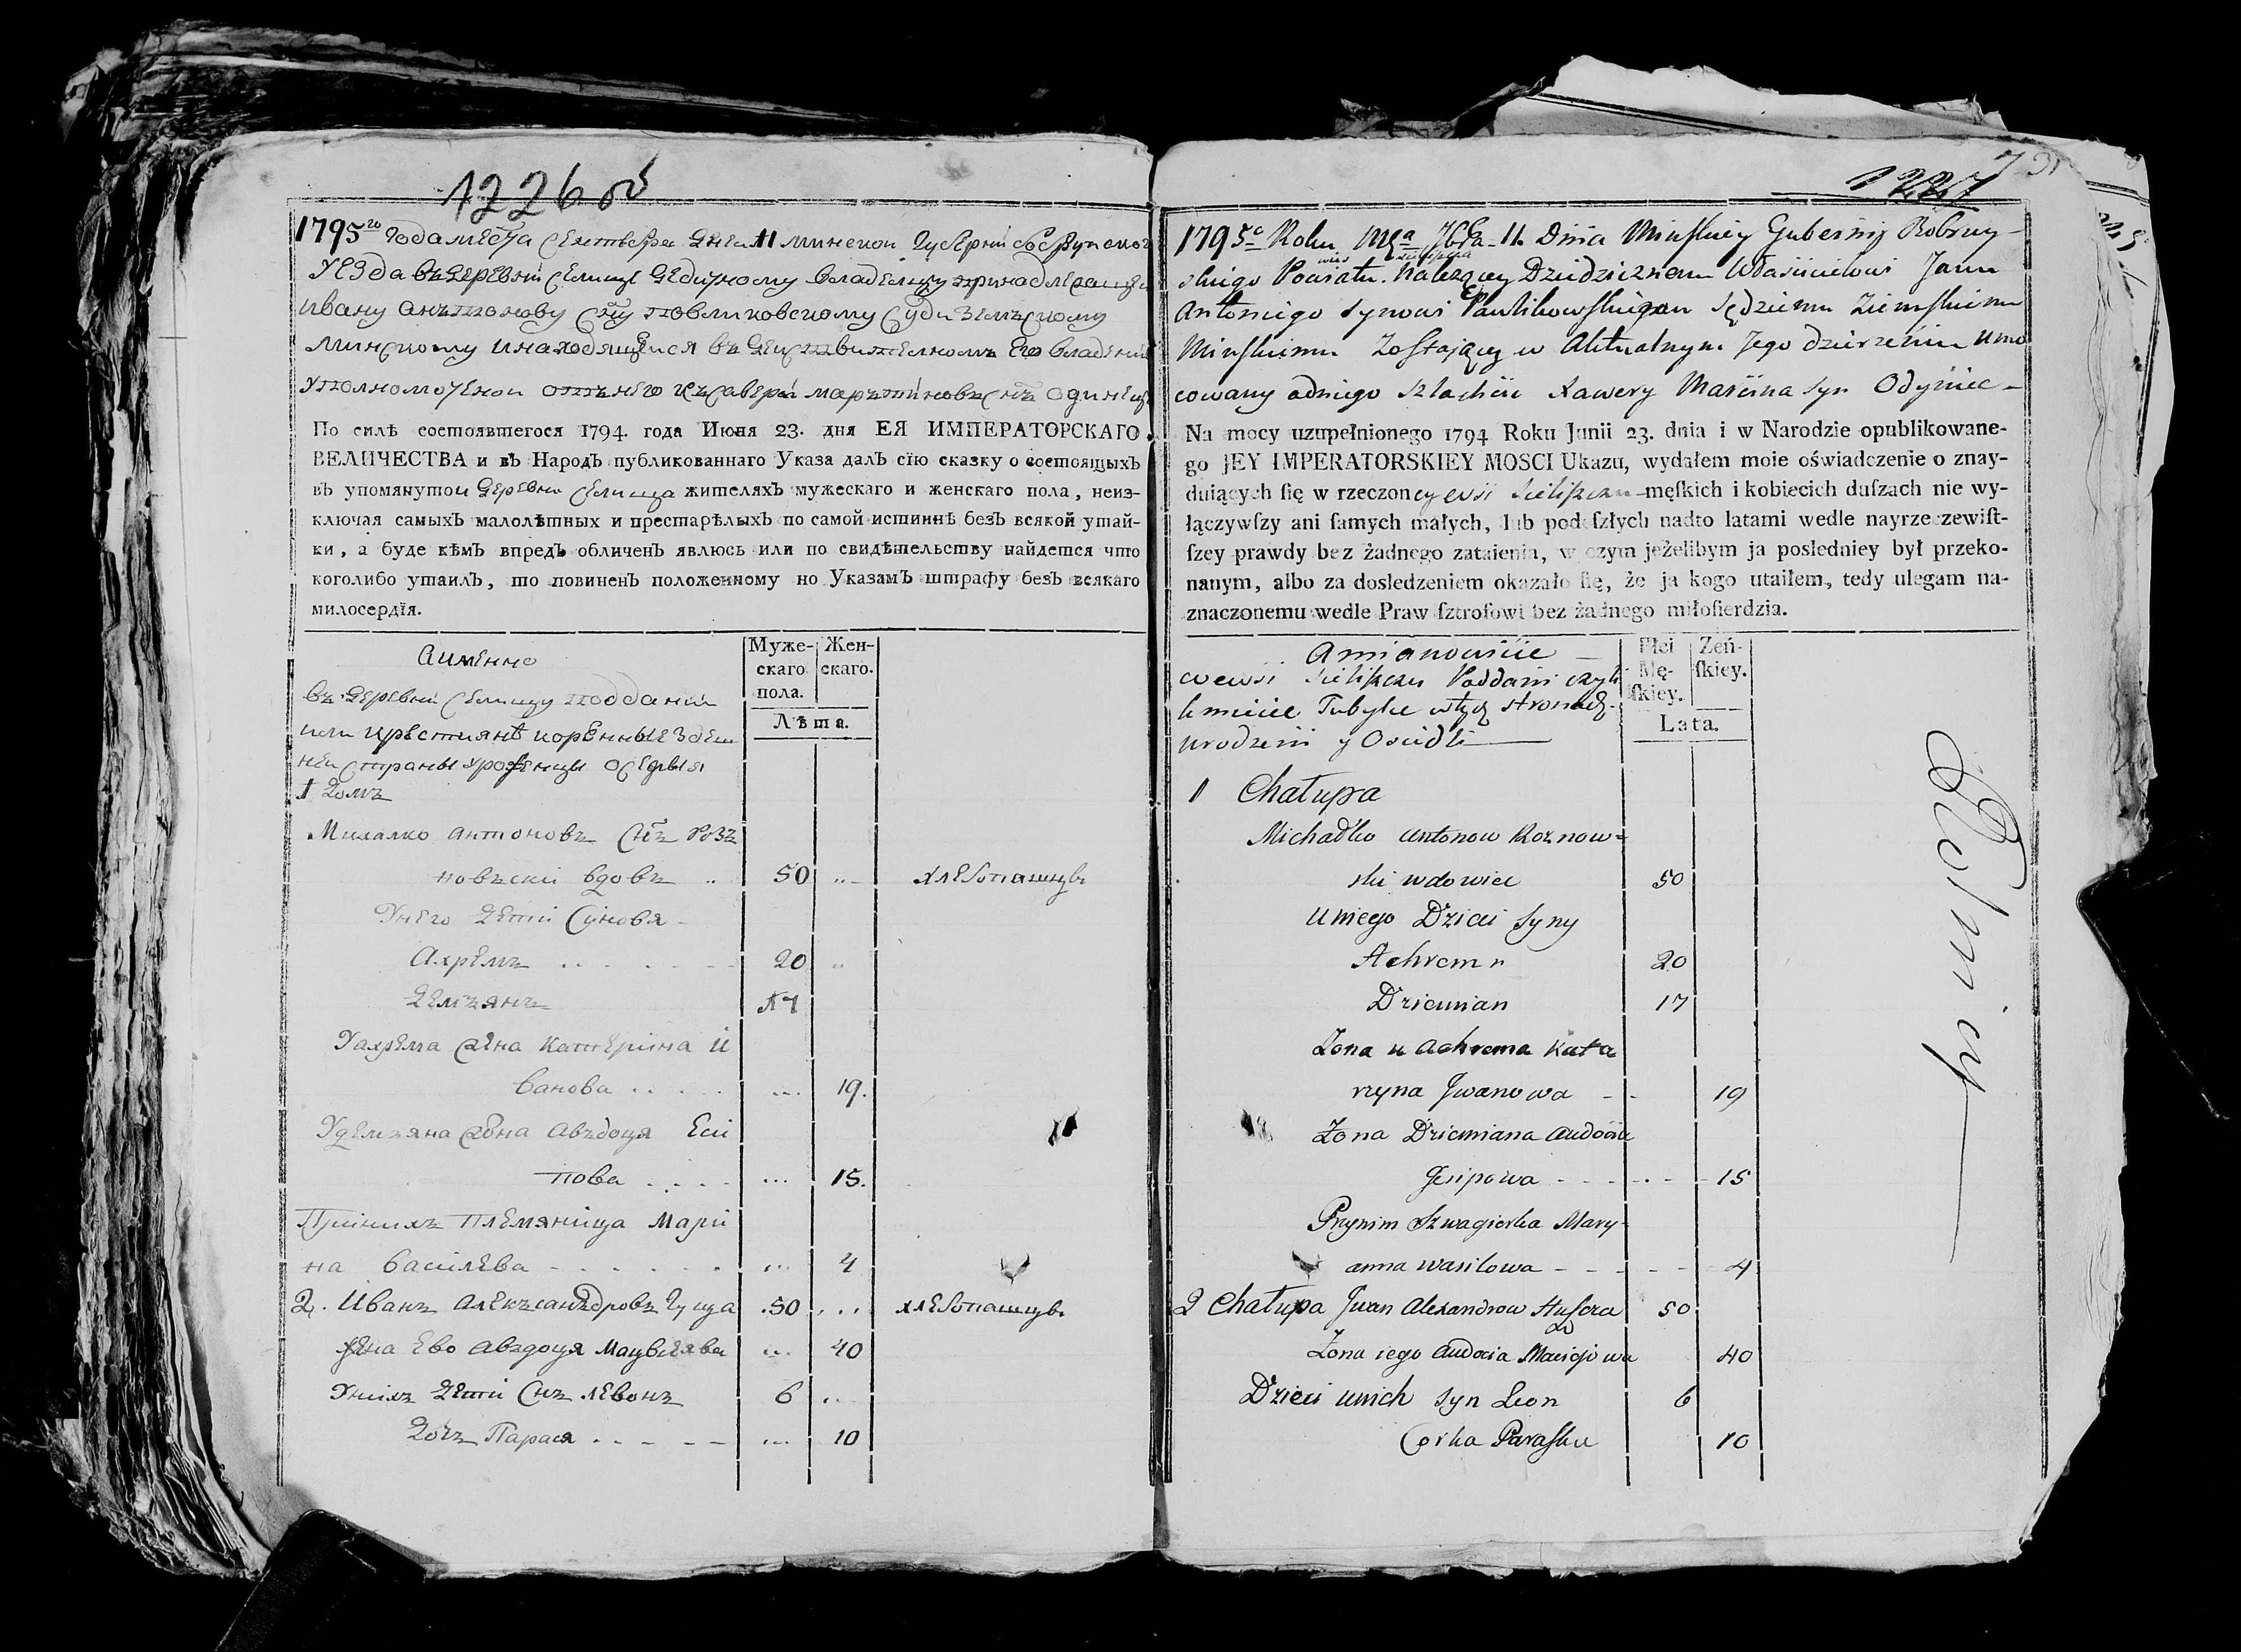 1226 об
1795го года мес̃та сентебра дня 11 минскои губерни бобруискаго
уезда въ деревни селище дедичному владелцу принадлежащеи
ивану анътонову сн̃у повликовскому судьи земъскому
минскому инаходящейся въ действителномъ его владении
уполномоченои отънего ксавери марътиновъ снъ одинец
По силѣ состоявшегося 1794. года Июня 23. дня ЕЯ ИМПЕРАТОРСКАГО
ВЕЛИЧЕСТВА и въ Народъ публикованнаго Указа далъ сїю сказку о состоящыхъ
въ упомянутои деревни селища жителяхъ мужескаго и женскаго пола, неиз-
ключая самыхъ малолѣтных и престарѣлыхъ по самой истиннѣ безъ всякой утай-
ки, а буде кѣмъ впредъ обличенъ явлюсь или по свидѣтельству найдется что
коголибо утаилъ, то повиненъ положенному по Указамъ штрафу безъ всякаго
милосердїя.
Муже-
скаго
пола.
Жен-
скаго.
Лѣта.
аименно
въ деревни селищу поддании
или крестиянѣ коренные здеш
неи страны уроженцы оседлыя
1 домъ
Михалко антоновъ сн̃ъ розъ
новъски вдовъ .. 50 .. хлебопашцъ
Унего дети синовя
Ахремъ 20 ..
демъянъ 17
Уахрема жена катерина и
ванова ... 19.
Удемъяна жена авъдоця еси
пова ... 15.
Приниxъ племяница Мари
на василева ... 4
2. Иванъ алекъсанъдровъ гуща 50 ... хлебопашцъ
жена ево авдоця мацвеява ... 40
Унихъ дети снъ левонъ 6 ...
дочъ Парася ... 10
1227
1795o Roku Mca 7bra 11 Dnia Minskiey Gubernij Bobruy-
wies Sieliszcza
skiego Powiatu. Należącey Dziedzicznem Właścicielowi Janu
Antoniego synowi Pawlikowskiemu Sędziemu Ziemskiemu
Minskiemu Zostaiącey w Aktualnym Jego dzierżeniu umo
cowany odniego szlachcic Xawery Marcina syn Odyniec -
Na mocy uzupełnionego 1794 Roku Junii 23. dnia i w Narodzie opublikowane-
go JEY IMPERATORSKIEY MOSCI Ukazu, wydałem moie oświadczenie o znay-
duiących ſię w rzeczoney wsi Sieliszczu męſkich i kobiecich duſzach nie wy-
łączywſzy ani ſamych małych, lub podeſzłych nadto latami wedle nayrzeczewiſt-
ſzey prawdy bez żadnego zataienia, w czym jeżelibym ja posledniey był przeko-
nanym, albo za dosledzeniem okazało ſię, że ja kogo utaiłem, tedy ulegam na-
znaczonemu wedle Praw ſztrofowi bez żadnego miłoſierdzia.
Płci
Mę-
ſkiey.
Żeń-
ſkiey.
Lata.
Amianowicie
wewsi Sieliszczu Poddani czyli
kmiecie Tubylce w tych stronach
urodzeni y Osiedli
1 Chałupa
Michałko Antonow Roznow-
ski wdowiec 50
Uniego Dzieci Syny
Achrem 20
Dziemian 17
Żona u Achrema Kata
rzyna Jwanowa - - 19
Żona Dziemiana Audocia
Jesipowa - - - 15
Przynim Szwagierka Mary-
anna Wasilowa - - - 4
2 Chałupa Jwan Alexandrow Huszcza 50
Żona iego Audocia Maciejowa 40
Dzieci unich syn Leon 6
Corka Paraska 10